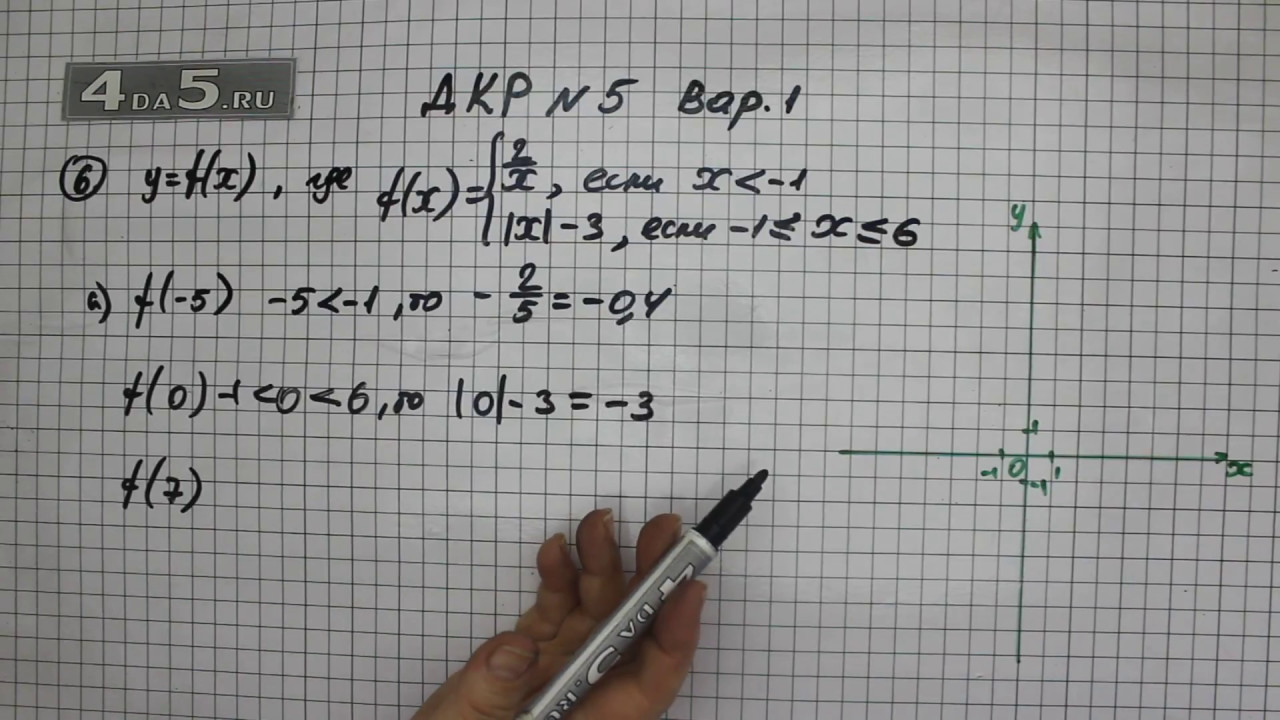 4DA5.RU
ДКР N5 Вар. 1
6 y=f(x), где f(x)={2/x, если x<-1
|x|-3, если -1≤x≤6
а) f(-5) -5<-1, то -2/5=-0,4
f(0) -1<0<6, то |0|-3=-3
f(7)
y
1
-1 0 1 x
-1
4DA5.RU